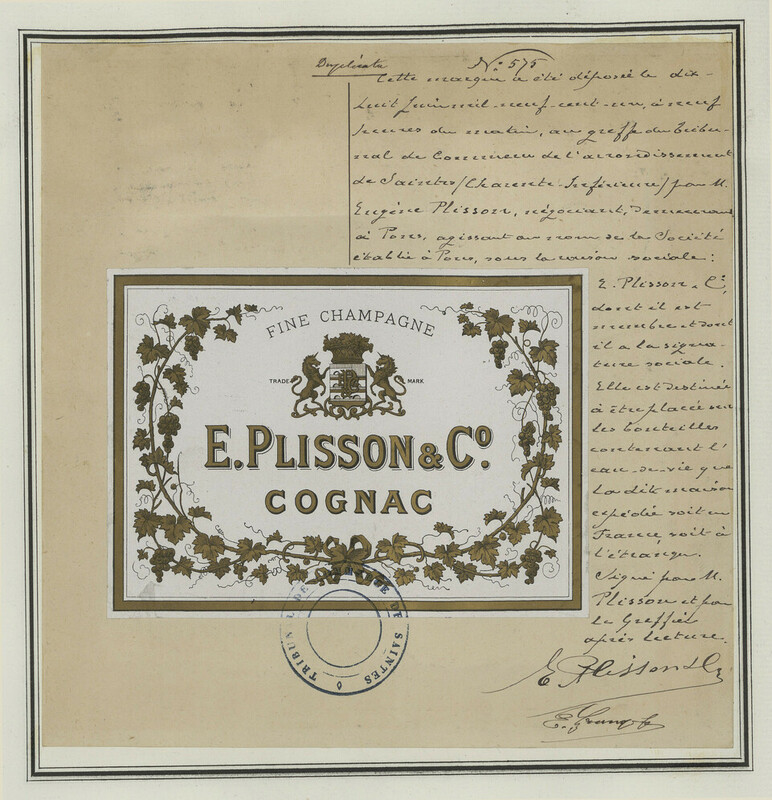 Duplicata
N° 575
Cette marque a été déposée le dix-
huit Juin mil-neuf-cent-un, à neuf
heures du matin, au greffe du Tribu-
nal de Commerce de l'arrondissement
de Saintes (Charente-Inférieure) par M.
Eugène Plisson, négociant, demeurant
à Pons, agissant au nom de la Société
établie à Pons, sous la raison sociale:
E. Plisson & Cie,
dont il est
membre et dont
il a la signa-
ture sociale.
Elle est destinée
à être placée sur
les bouteilles
contenant l'
eau-de-vie que
la dite maison
expédie soit en
France soit à
l'étranger.
Signé par M.
Plisson et par
le Greffier
après lecture.
E. Plisson & Co
FINE CHAMPAGNE
TRADE MARK
E. PLISSON & Cº.
COGNAC
TRIBUNAL DE COMMERCE DE SAINTES